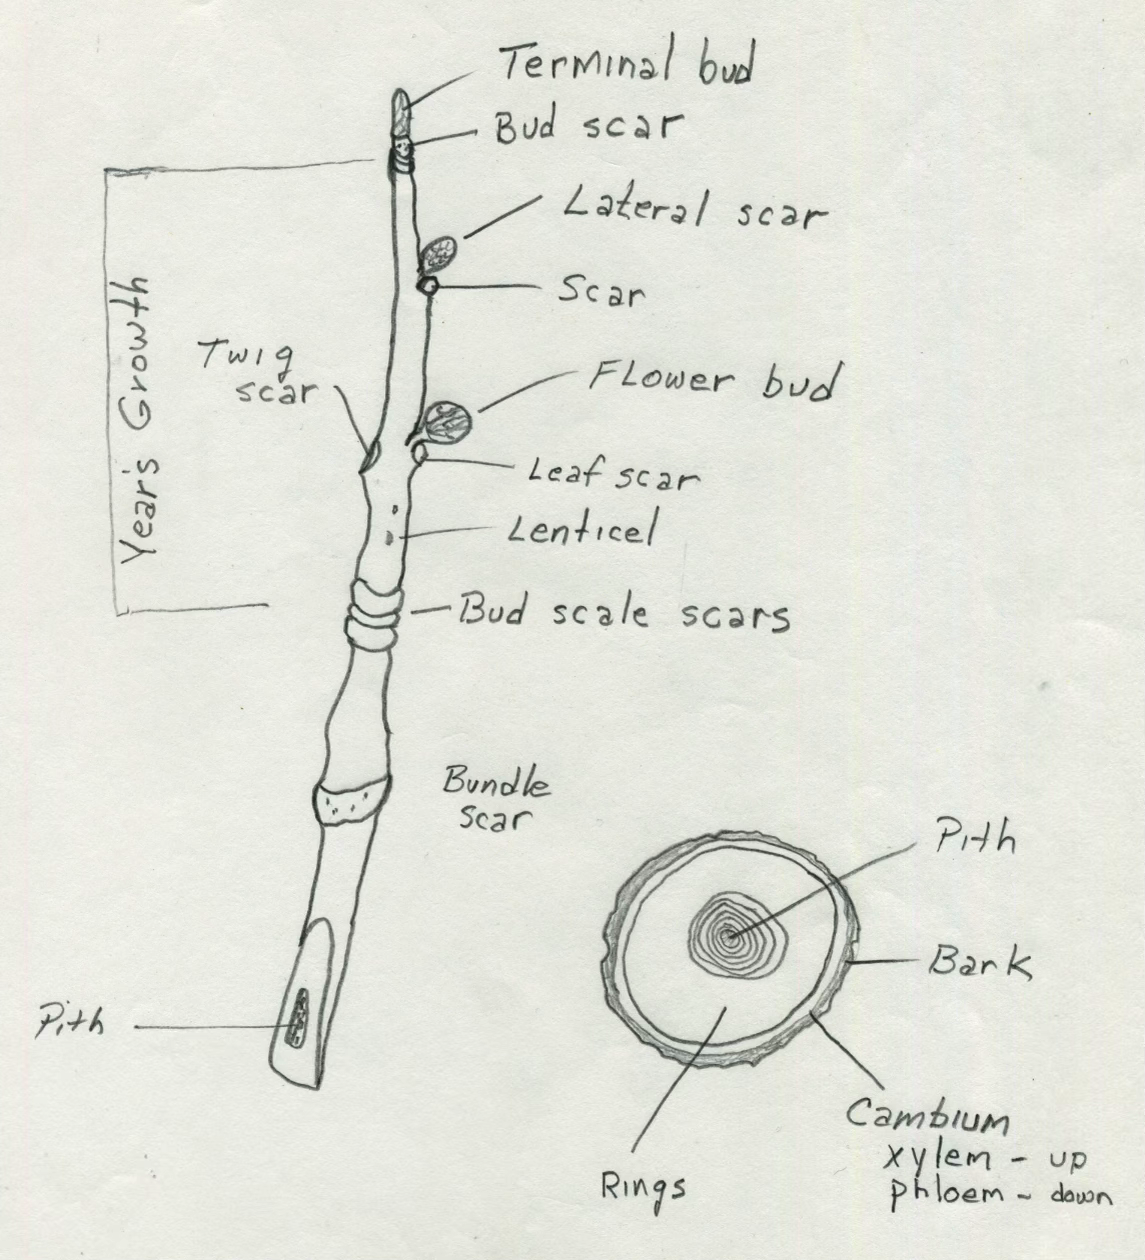 Terminal bud
Bud scar
Lateral scar
Scar
Twig
scar
Flower bud
Year's Growth
Leaf scar
Lenticel
Bud scale scars
Bundle
scar
Pith
Bark
Pith
Cambium
xylem - up
phloem - down
Rings